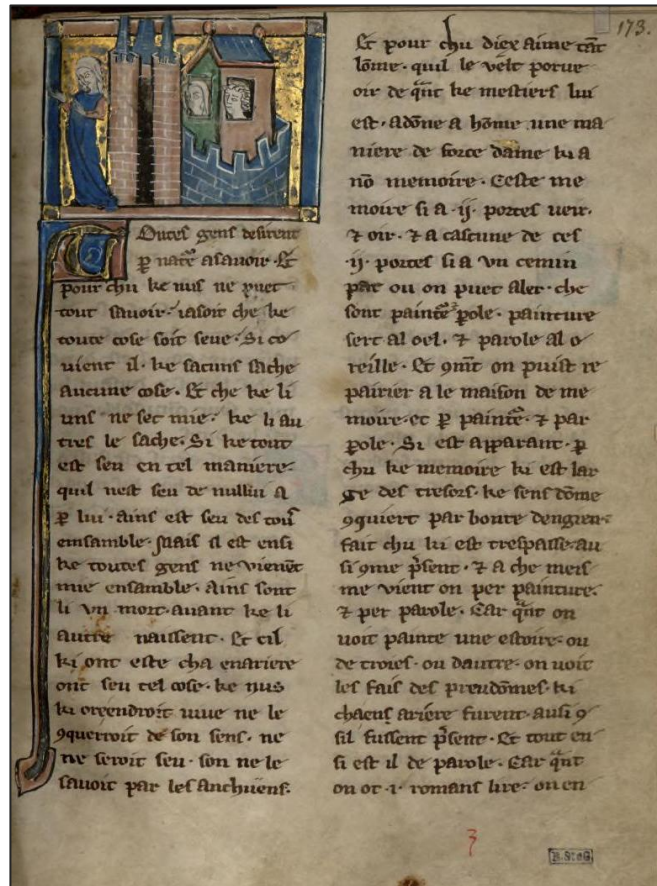 173.
Outes gens desirent
p̲ nate᷒ asavoir · Et
pour chu ke nus ne puet
tout savoir · iasoit che ke
toute cose soit seue · Si co
vient il · ke sacuns sache
aucune cose · Et che ke li
uns ne set mie · ke li au
tres le sache · Si ke tout
est seu en tel maniere
quil nest seu de nullui a
ꝑ lui · ains est seu des tous
ensamble · Mais il est ensi
ke toutes gens ne vienēt
mie ensamble · Ains sont
li vn mort · auant ke li
autre naissent · Et cil
ki ont este cha enariere
ont seu tel cose · ke nus
ki orendroit viue ne le
ꝯquerroit de son sens · ne
ne seroit seu · son ne le
sauoit par les anchiiens ·
Et pour chu diex aime tāt
lōme · quil le velt porue
oir de q̄nt ke mestiers lui
est · adōne a hōme une ma
niere de force dame ki a
nō memoire · Ceste me
moire si a · ij · portes veir ·
⁊ oir · ⁊ a cascune de ces
·ij· portes si a vn cemin
par ou on puet aler · che
sont painte᷒ ⁊ ꝑole · painture
sert al oel · ⁊ parole al o
reille · Et ꝯmēt on puist re
pairier a le maison de me
moire · et ꝑ painte᷒ · ⁊ par
ꝑole · Si est apparant · ꝑ
chu ke memoire ki est lar
ge des tresors · ke sens dōme
ꝯquiert par bonte dengien ·
fait chu ki est trespasse · au
si ꝯme p̄sent · ⁊ a che meis
me vient on per painture ·
⁊ per parole · Car q̄nt on
voit painte une estoire · ou
de troies · ou dautre · on voit
les fais des preudōmes · ki
chaens ariere furent · ausi ꝯ
sil fussent p̄sent · Et tout en
si est il de parole · Car q̄nt
on ot · i · romans lire · on en